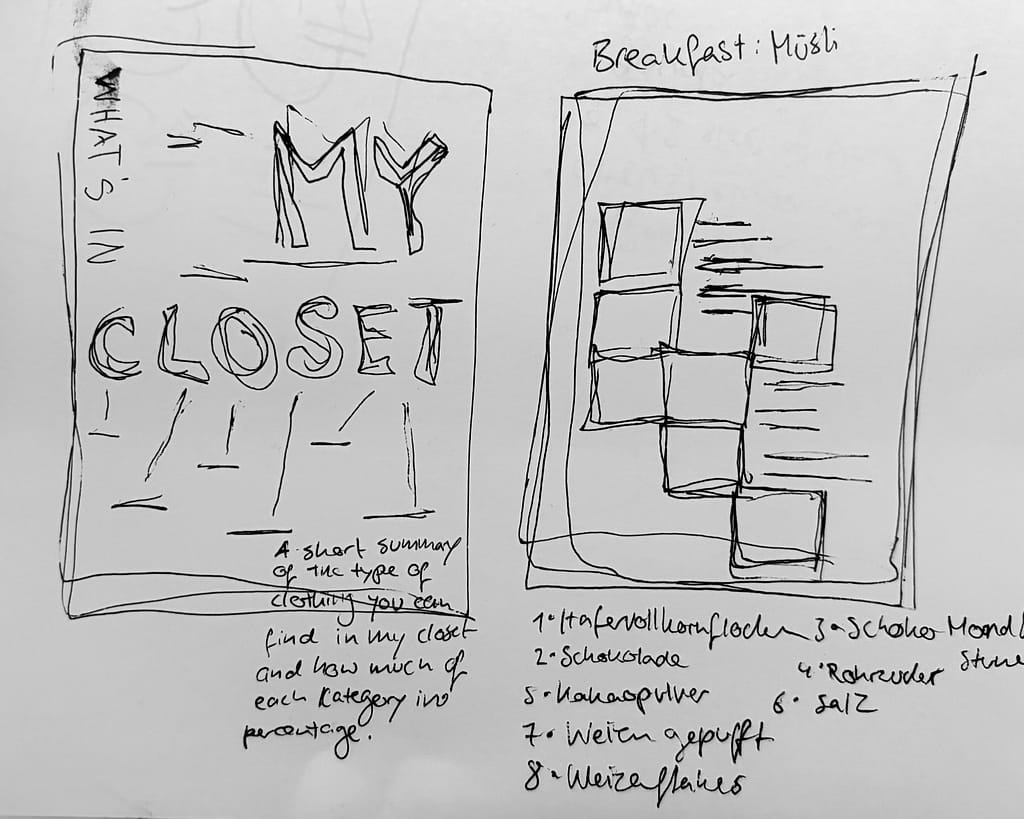 WHAT'S IN
MY
CLOSET
A short summary
of the type of
clothing you can
find in my closet
and how much of
each Kategory in
percentage.
Breakfast: Müsli
1. Hafervollkornflocken
2. Schokolade
3. Schoko Mandl
4. Rohrzucker
5. Kakaopulver
6. Salz
7. Weizen gepufft
8. Weizenflakes